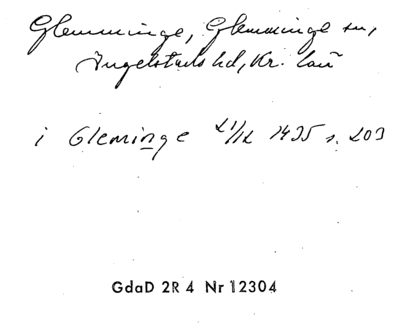 Glemminge, Glemminge sn,
Ingelstads hd, Kr. län
i Gleminge 21/12 1435 s. 203
GdaD 2R 4 Nr 12304